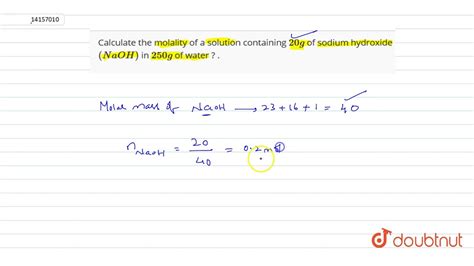 14157010
Calculate the molality of a solution containing 20g of sodium hydroxide
(NaOH) in 250g of water ? .
Molar mass of NaOH → 23+16+1 = 40
nNaOH = 20/40 = 0.2 mol
doubtnut